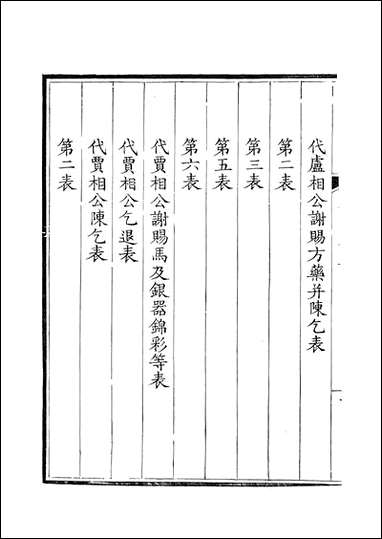 代盧相公謝賜方藥并陳乞表
第二表
第三表
第五表
第六表
代賈相公謝賜馬及銀器錦彩等表
代賈相公乞退表
代賈相公陳乞表
第二表